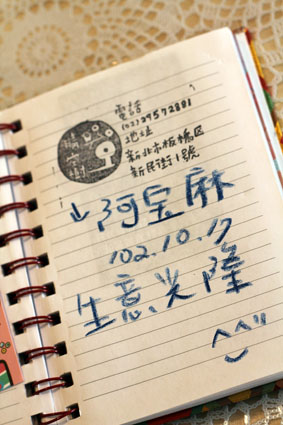 電話
(02)29572881
地址
新北市板橋区
新民街1號
↓阿宝麻
102.10.17
生意光隆
^^"